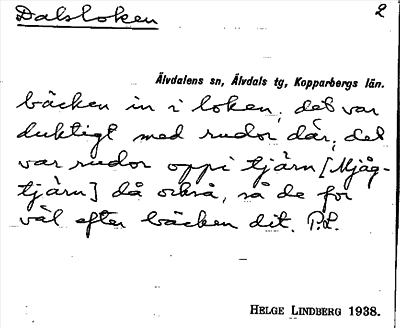 Dalsloken 2
Älvdalens sn, Älvdals tg, Kopparbergs län.
bäcken in i loken, det var
duktigt med rudor där, det
var rudor oppi tjärn [Mjåg-
tjärn] då också, så de for
väl efter bäcken dit. P.L.
HELGE LINDBERG 1938.